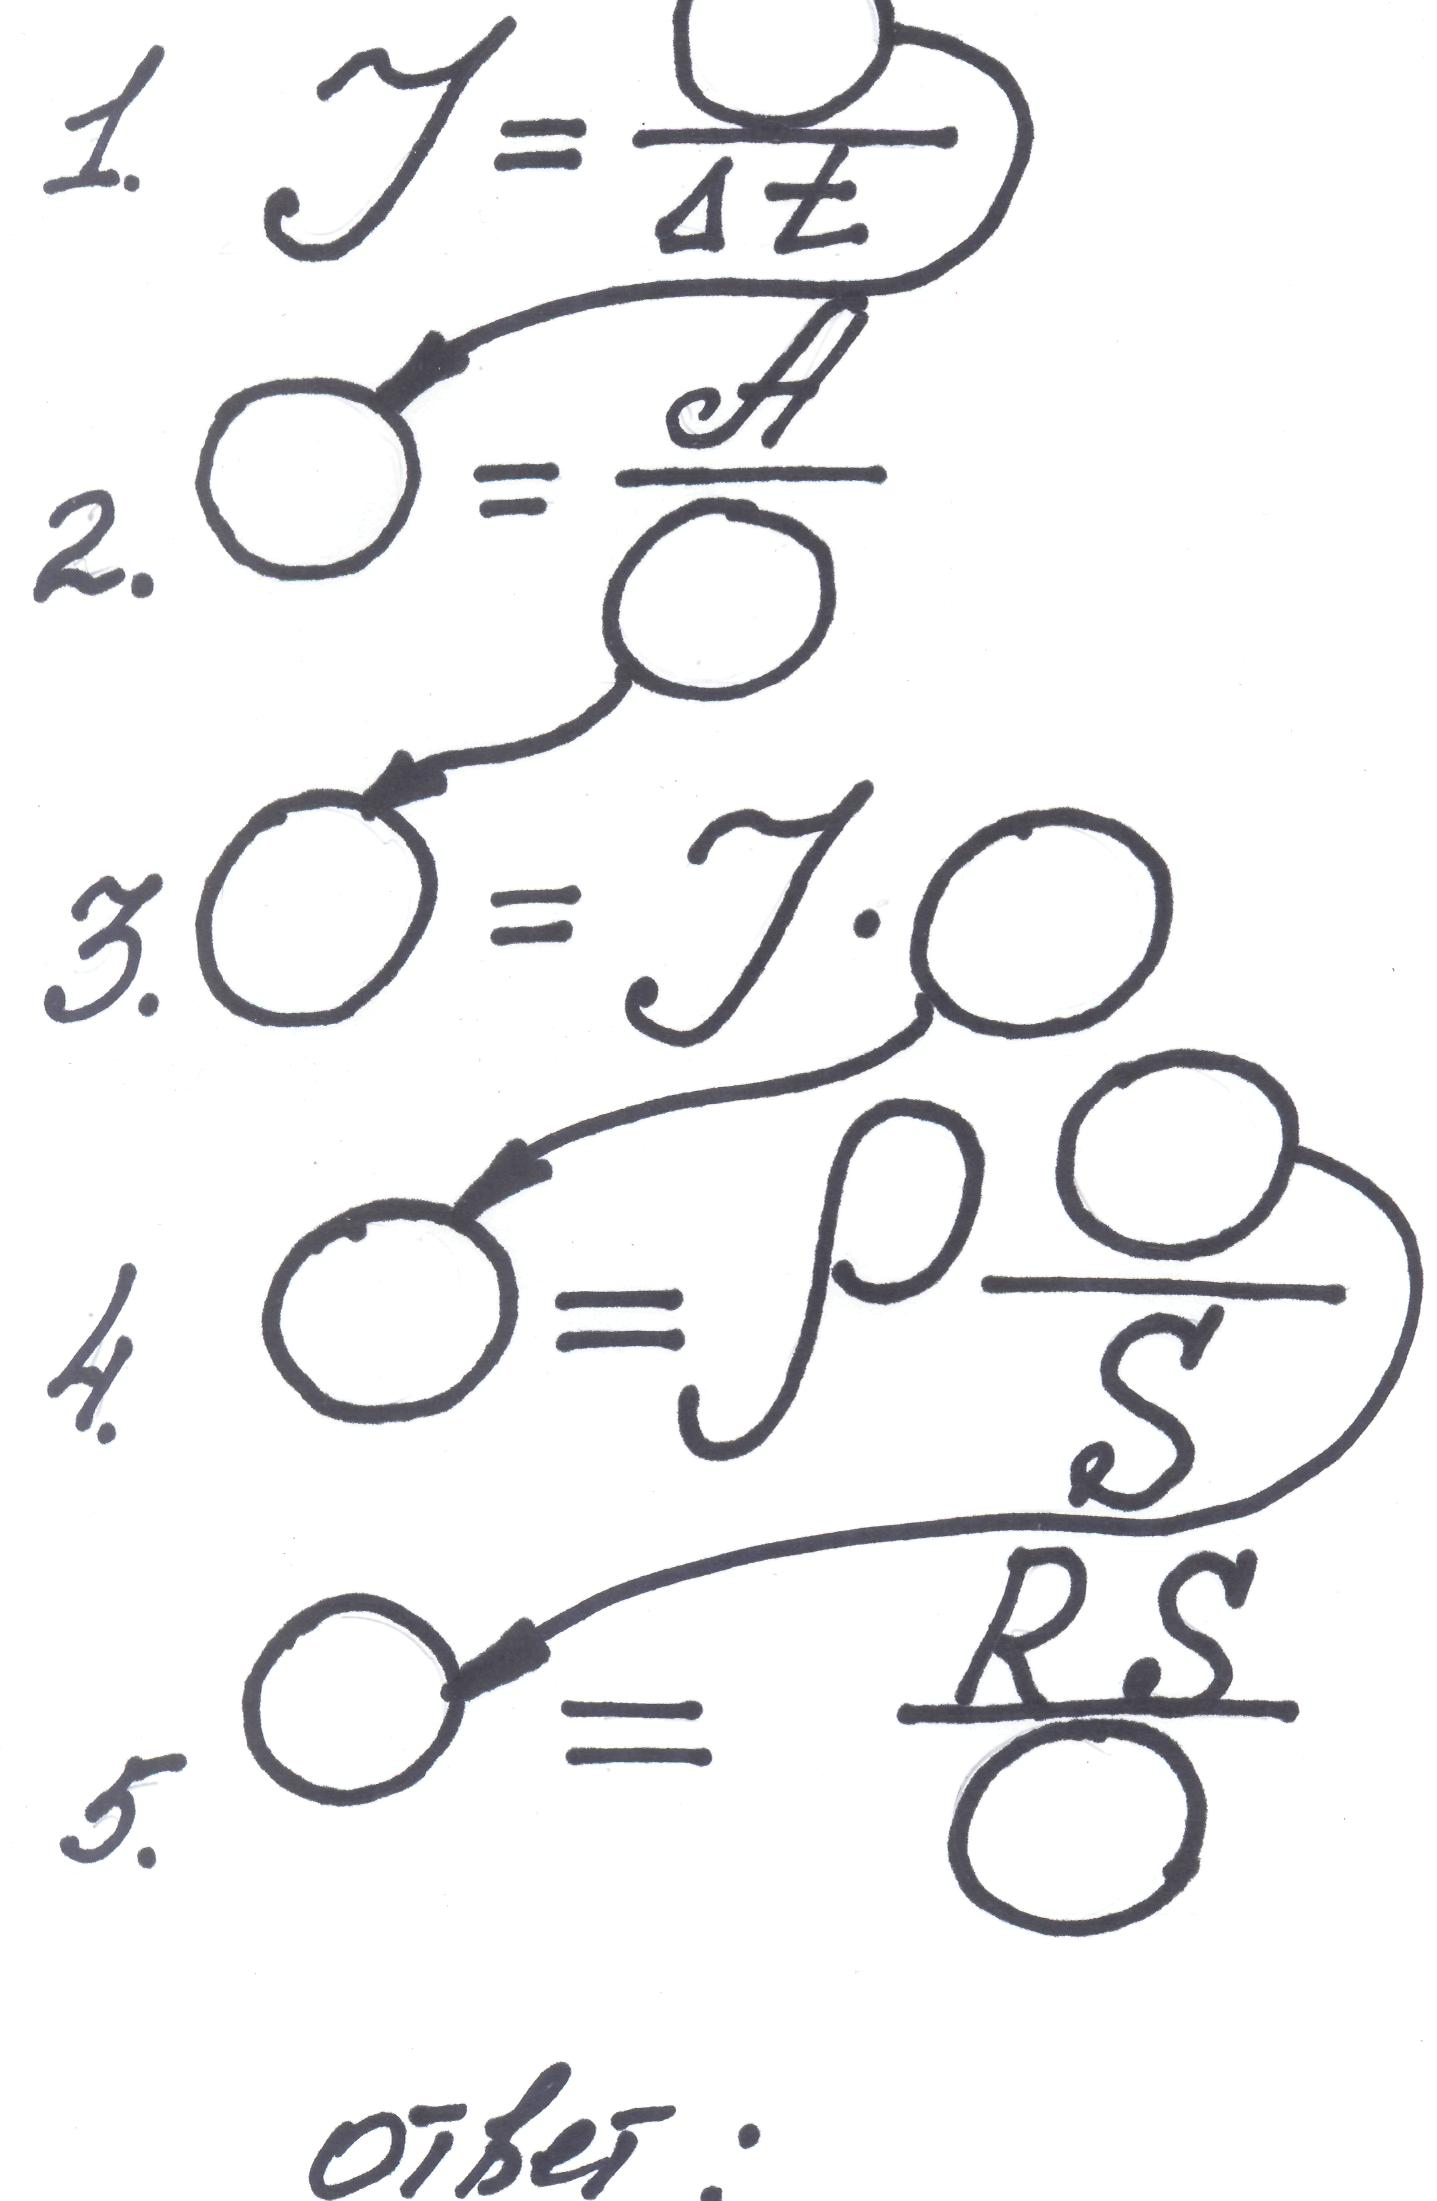 1. J = ○ / Δt
2. ○ = A / ○
3. ○ = J · ○
4. ○ = ρ ○ / S
5. ○ = R · S / ○
Ответ: